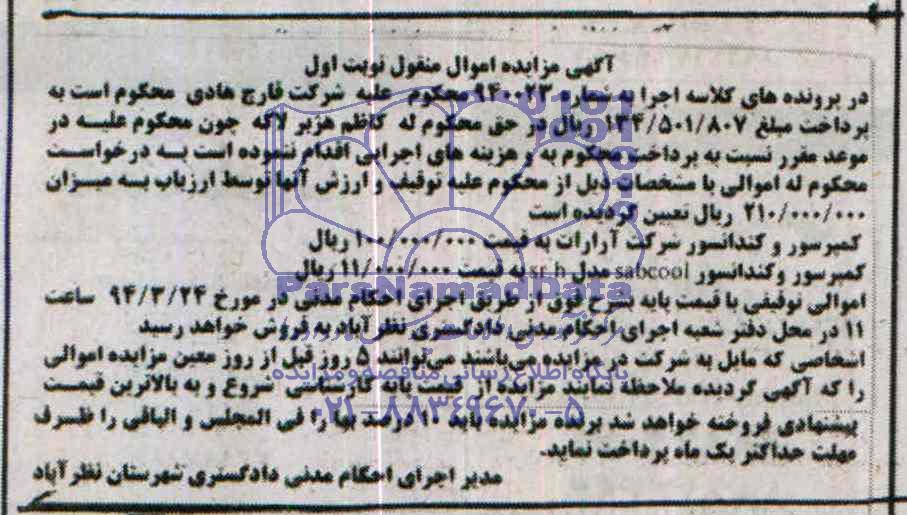 آگهی مزایده اموال منقول نوبت اول
در پرونده های کلاسه اجرا به شماره ۹۴۰۰۲۳ محکوم علیه شرکت قارچ هادی محکوم است به
پرداخت مبلغ ۱۳۴/۵۰۱/۸۰۷ ریال در حق محکوم له کاظم هژبر که چون محکوم علیه در
موعد مقرر نسبت به پرداخت محکوم به و هزینه های اجرایی اقدام ننموده است به درخواست
محکوم له اموالی با مشخصات ذیل از محکوم علیه توقیف و ارزش آنها توسط ارزیاب به میزان
۲۱۰/۰۰۰/۰۰۰ ریال تعیین گردیده است
کمپرسور و کندانسور شرکت آرارات به قیمت ۱۰۰/۰۰۰/۰۰۰ ریال
کمپرسور وکندانسور sabcool مدل sr.h به قیمت ۱۱/۰۰۰/۰۰۰ ریال
اموالی توقیفی با قیمت پایه بشرح فوق از طریق اجرای احکام مدنی در مورخ ۹۴/۳/۲۴ ساعت
۱۱ در محل دفتر شعبه اجرای احکام مدنی دادگستری نظر آباد به فروش خواهد رسید
اشخاصی که مایل به شرکت در مزایده می‌باشند می‌توانند ۵ روز قبل از روز معین مزایده اموالی
را که آگهی گردیده ملاحظه نمایند مزایده از قیمت پایه کارشناسی شروع و به بالاترین قیمت
پیشنهادی فروخته خواهد شد برنده مزایده باید ۱۰ درصد بها را فی المجلس و الباقی را ظرف
مهلت حداکثر یک ماه پرداخت نماید.
مدیر اجرای احکام مدنی دادگستری شهرستان نظر آباد
ParsNamadData
پایگاه اطلاع رسانی مناقصه و مزایده
۰۲۱-۸۸۳۴۹۶۷۰-۵